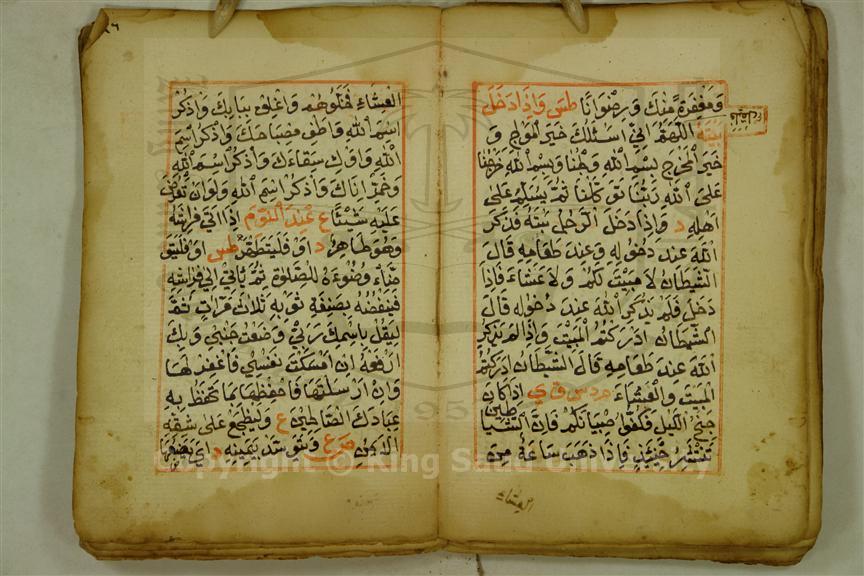 ومغفرة منك ورضوانا طس واذا دخل
بيته اللهم اني اسئلك خير المولج و
خير المخرج بسم الله ولجنا وبسم الله خرجنا
وعلى الله ربنا توكلنا ثم يسلم على
اهله د واذا دخل الرجل بيته فذكر
الله عند دخوله وعند طعامه قال
الشيطان لا مبيت لكم ولا عشاء فاذا
دخل فلم يذكر الله عند دخوله قال
الشيطان ادركتم المبيت واذا لم يذكر
الله عند طعامه قال الشيطان ادركتم
المبيت والعشاء م د س ق ي اذا كان
جنح الليل فكفوا صبيانكم فان الشياطين
تنتشر حينئذ فاذا ذهب ساعة من
العشاء
العشاء فخلوهم واغلق بابك واذكر
اسم الله واطفئ مصباحك واذكر اسم
الله واوك سقاءك واذكر اسم الله
وخمر اناءك واذكر اسم الله ولو ان تعرض
عليه شيئا ع عند النوم اذا اتى فراشه
وهو طاهر د او فليتطهر طس او فليتوضأ
وضوءه للصلوة ثم يأتي الى فراشه
فينفضه بصنفة ثوبه ثلاث مرات ثم
ليقل باسمك ربي وضعت جنبي وبك
ارفعه ان امسكت نفسي فاغفر لها
وان ارسلتها فاحفظها بما تحفظ به
عبادك الصالحين ع وليضطجع على شقه
الايمن ع ويتوسد يمينه د اي يضعها
Copyright © King Saud University